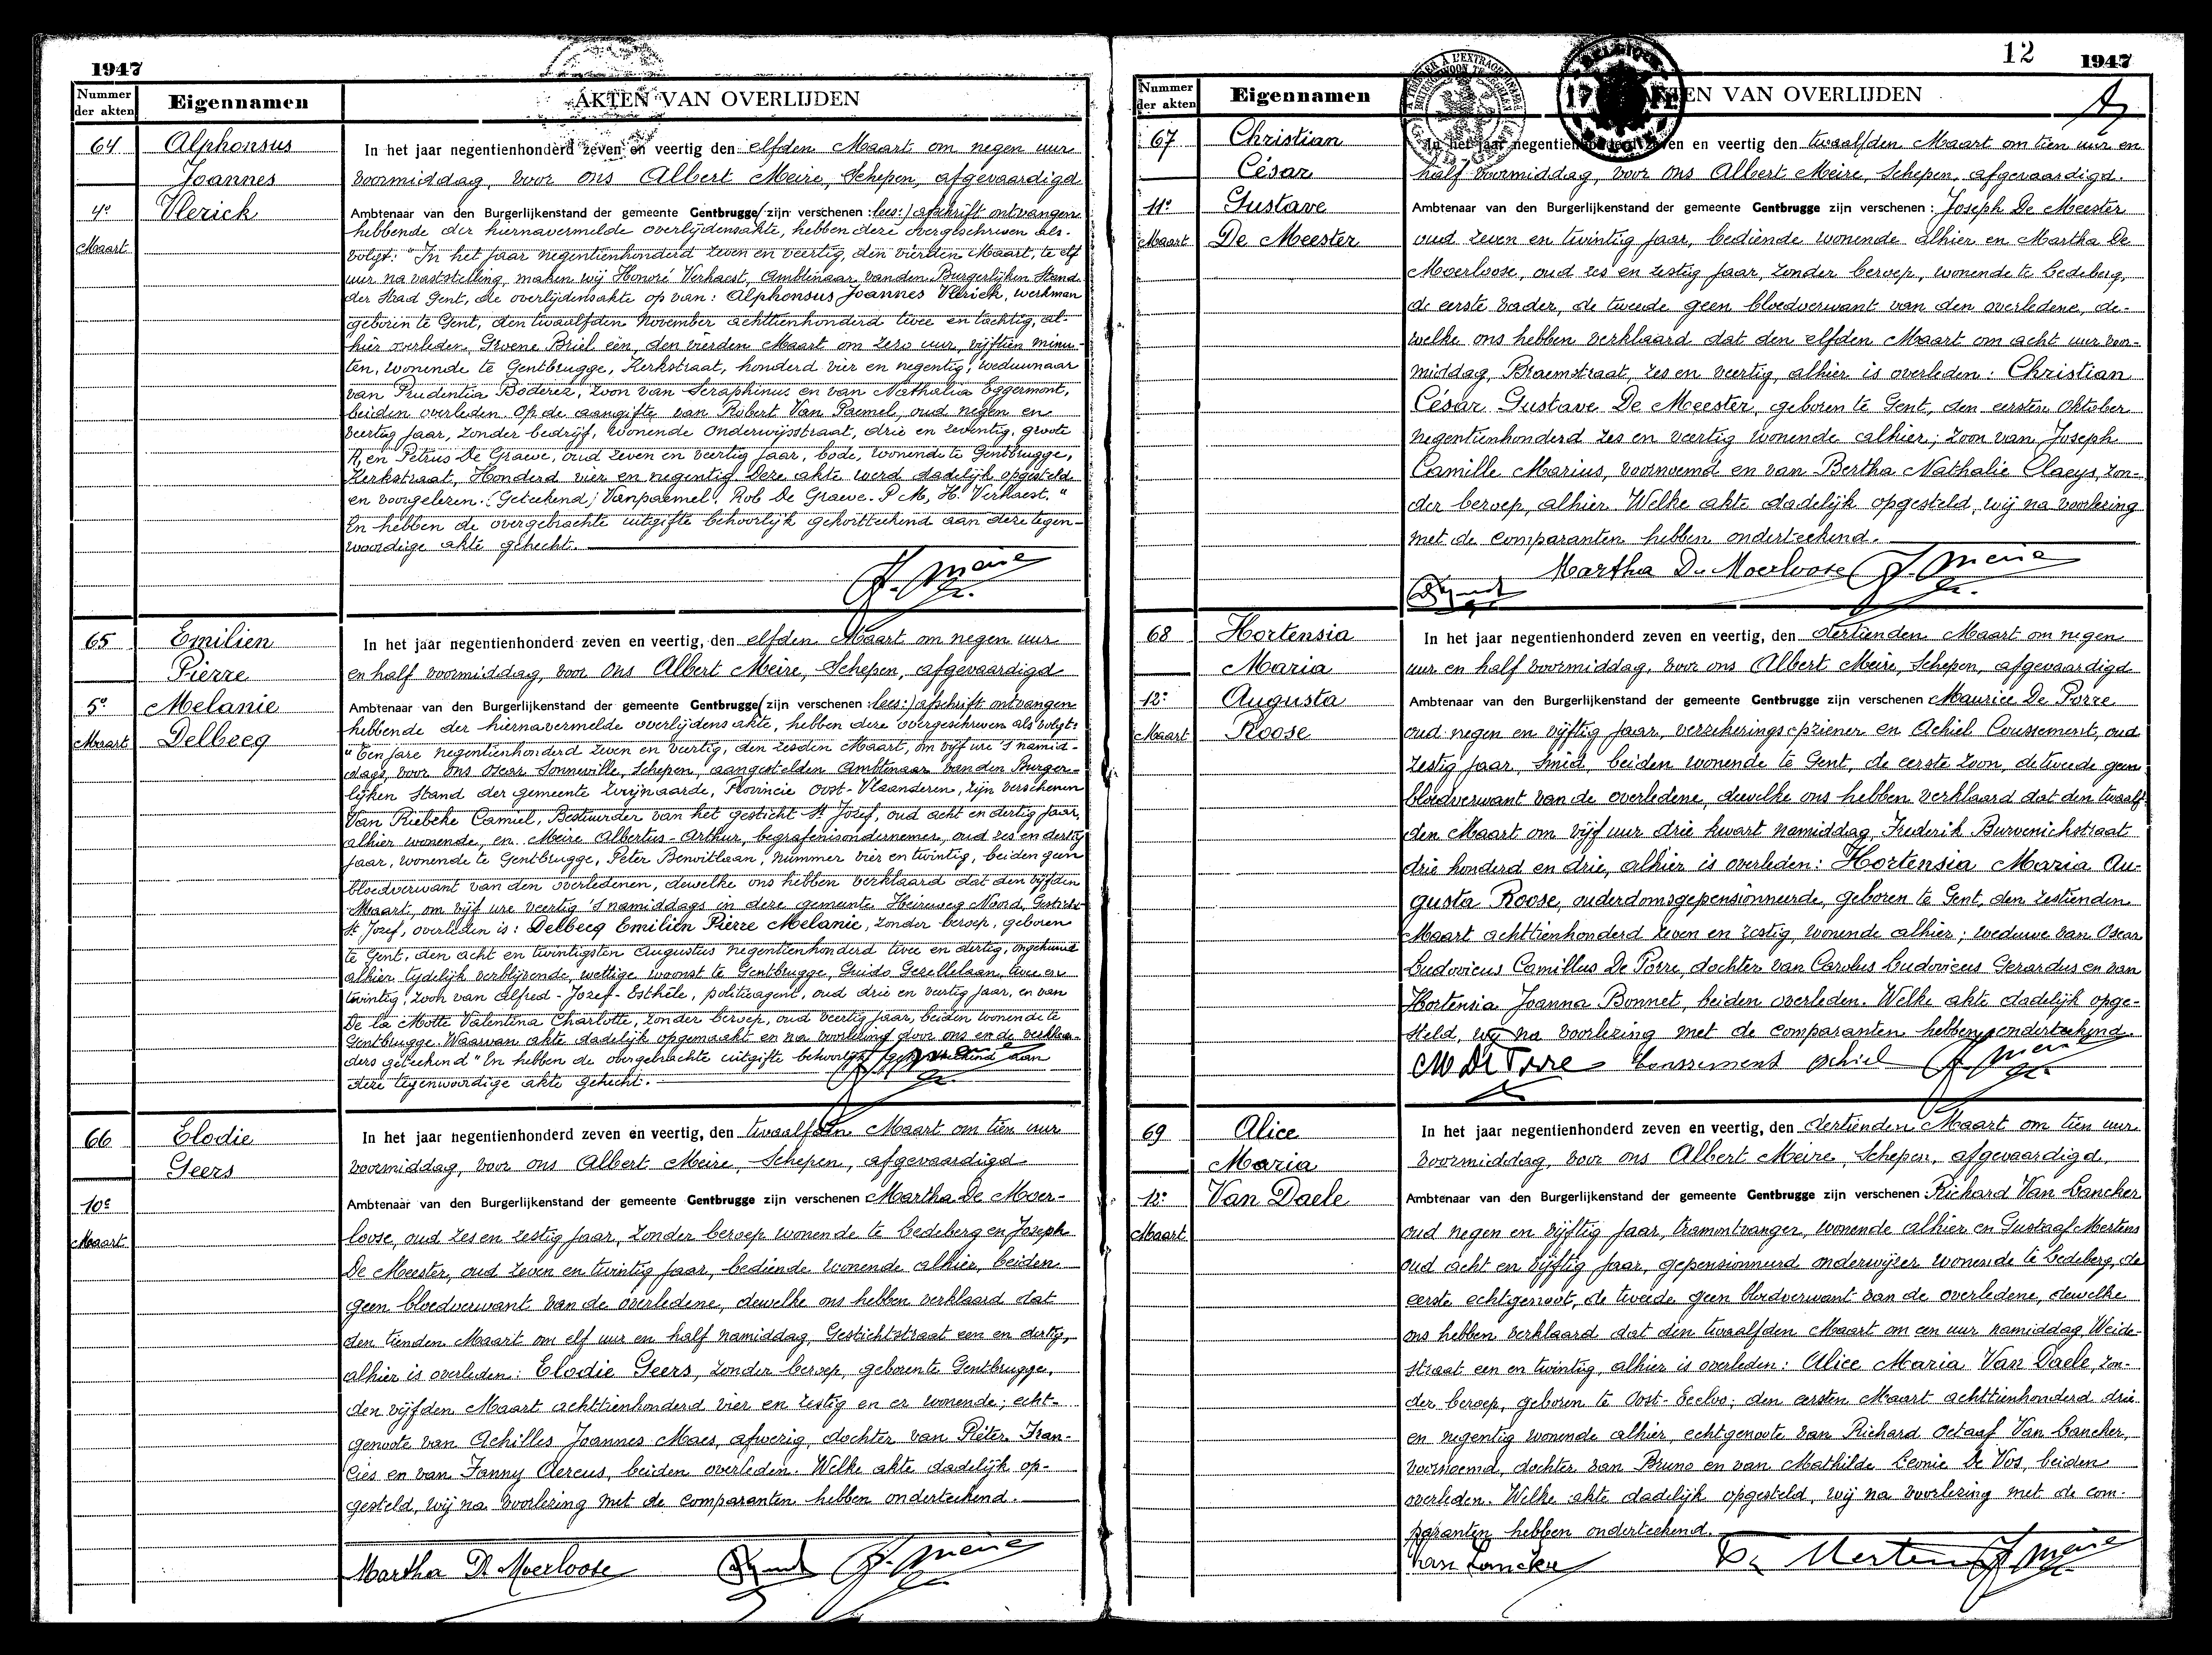 1947
Nummer der akten
Eigennamen
AKTEN VAN OVERLIJDEN
64
4e
Maart
Alphonsus
Joannes
Vlerick
In het jaar negentienhonderd zeven en veertig den elfden Maart om negen uur
voormiddag, voor ons Albert Meire, Schepen, afgevaardigd
Ambtenaar van den Burgerlijkenstand der gemeente Gentbrugge (zijn verschenen: lees:) afschrift ontvangen
hebbende der hiernavermelde overlijdensakte, hebben deze overgeschreven als
volgt: "In het jaar negentienhonderd zeven en veertig, den vierden Maart, te elf
uur na vaststelling, maken wij Honoré Verhaest, Ambtenaar van den Burgerlijken Stand
der Stad Gent, de overlijdensakte op van: Alphonsus Joannes Vlerick, werkman
geboren te Gent, den twaalfden November achttienhonderd twee en tachtig, al-
hier overleden, Groene Briel één, den vierden Maart om zero uur, vijftien minu-
ten, wonende te Gentbrugge, Kerkstraat, honderd vier en negentig, weduwnaar
van Prudentia Boderez, zoon van Seraphinus en van Nathalia Eggermont,
beiden overleden. Op de aangifte van Robert Van Paemel, oud negen en
veertig jaar, zonder bedrijf, wonende Onderwijsstraat, drie en zeventig, groote
A, en Petrus De Graeve, oud zeven en veertig jaar, bode, wonende te Gentbrugge,
Kerkstraat, Honderd vier en negentig. Deze akte werd dadelijk opgesteld
en voorgelezen. (Geteekend) Vanpaemel. Rob De Graeve. P M, H. Verhaest."
En hebben de overgebrachte uitgifte behoorlijk gekortteekend aan deze tegen-
woordige akte gehecht.
A. Meire
65
5e
Maart
Emilien
Pierre
Melanie
Delbecq
In het jaar negentienhonderd zeven en veertig, den elfden Maart om negen uur
en half voormiddag, voor ons Albert Meire, Schepen, afgevaardigd
Ambtenaar van den Burgerlijkenstand der gemeente Gentbrugge (zijn verschenen: lees:) afschrift ontvangen
hebbende der hiernavermelde overlijdensakte, hebben deze overgeschreven als volgt:
"Ten jare negentienhonderd zeven en veertig, den zesden Maart, om vijf ure 's namid-
dags, voor ons Oscar Sonneville, Schepen, aangestelden Ambtenaar van den Burger-
lijken Stand der gemeente Zwijnaarde, Provincie Oost-Vlaanderen, zijn verschenen
Van Riebeke Camiel, Bestuurder van het gesticht St Jozef, oud acht en dertig jaar,
alhier wonende, en Meire Albertus-Arthur, begrafenisondernemer, oud zes en dertig
jaar, wonende te Gentbrugge, Peter Benoitlaan, nummer vier en twintig, beiden geen
bloedverwant van den overledenen, dewelke ons hebben verklaard dat den vijfden
Maart, om vijf ure veertig 's namiddags in deze gemeente Heirweg Noord, Gesticht
St Jozef, overleden is: Delbecq Emilien Pierre Melanie, zonder beroep, geboren
te Gent, den acht en twintigsten Augustus negentienhonderd twee en dertig, ongehuwd
alhier tijdelijk verblijvende, wettige woonst te Gentbrugge, Guido Gezellelaan, twee en
twintig, zoon van Alfred-Jozef-Esthèle, politieagent, oud drie en veertig jaar, en van
De la Motte Valentina Charlotte, zonder beroep, oud veertig jaar, beiden wonende te
Gentbrugge. Waarvan akte dadelijk opgemaakt en na voorlezing door ons en de verklaa-
ders geteekend" En hebben de overgebrachte uitgifte behoorlijk gekortteekend aan
deze tegenwoordige akte gehecht.
A. Meire
66
10e
Maart
Elodie
Geers
In het jaar negentienhonderd zeven en veertig, den twaalfden Maart om tien uur
voormiddag, voor ons Albert Meire, Schepen, afgevaardigd
Ambtenaar van den Burgerlijkenstand der gemeente Gentbrugge zijn verschenen Martha De Moer-
loose, oud zes en zestig jaar, zonder beroep wonende te Ledeberg en Joseph
De Meester, oud zeven en twintig jaar, bediende wonende alhier, beiden
geen bloedverwant van de overledene, dewelke ons hebben verklaard dat
den tienden Maart om elf uur en half namiddag, Gestichtstraat een en dertig,
alhier is overleden: Elodie Geers, zonder beroep, geboren te Gentbrugge,
den vijfden Maart achttienhonderd vier en zestig en er wonende; echt-
genoote van Achilles Joannes Maes, afwezig, dochter van Pieter Fran-
cies en van Fanny Aereus, beiden overleden. Welke akte dadelijk op-
gesteld, wij na voorlezing met de comparanten hebben onderteekend.
Martha De Moerloose A. Meire
12
1947
Nummer der akten
Eigennamen
AKTEN VAN OVERLIJDEN
67
11e
Maart
Christian
César
Gustave
De Meester
In het jaar negentienhonderd zeven en veertig den twaalfden Maart om tien uur en
half voormiddag, voor ons Albert Meire, Schepen, afgevaardigd.
Ambtenaar van den Burgerlijkenstand der gemeente Gentbrugge zijn verschenen: Joseph De Meester
oud zeven en twintig jaar, bediende wonende alhier en Martha De
Moerloose, oud zes en zestig jaar, zonder beroep, wonende te Ledeberg,
de eerste vader, de tweede geen bloedverwant van den overledene, de-
welke ons hebben verklaard dat den elfden Maart om acht uur voor-
middag, Braemstraat, zes en veertig, alhier is overleden: Christian
César Gustave De Meester, geboren te Gent, den eersten Oktober
negentienhonderd zes en veertig wonende alhier; zoon van Joseph
Camille Marius, voornoemd en van Bertha Nathalie Claeys, zon-
der beroep, alhier. Welke akte dadelijk opgesteld, wij na voorlezing
met de comparanten hebben onderteekend.
Martha De Moerloose A. Meire
68
12e
Maart
Hortensia
Maria
Augusta
Roose
In het jaar negentienhonderd zeven en veertig, den dertienden Maart om negen
uur en half voormiddag, voor ons Albert Meire, Schepen, afgevaardigd
Ambtenaar van den Burgerlijkenstand der gemeente Gentbrugge zijn verschenen Maurice De Porre
oud negen en vijftig jaar, verzekerings en Achiel Coussement, oud
zestig jaar, Smid, beiden wonende te Gent, de eerste zoon, de tweede geen
bloedverwant van de overledene, dewelke ons hebben verklaard dat den twaalf-
den Maart om vijf uur drie kwart namiddag, Frederik Burvenichstraat
drie honderd en drie, alhier is overleden: Hortensia Maria Au-
gusta Roose, ouderdomsgepensionneerde, geboren te Gent, den zestienden
Maart achttienhonderd zeven en zestig, wonende alhier; weduwe van Oscar
Ludovicus Camillus De Porre, dochter van Carolus Ludovicus Gerardus en van
Hortensia Joanna Bonnet, beiden overleden. Welke akte dadelijk opge-
steld, wij na voorlezing met de comparanten hebben onderteekend.
M De Porre Coussement Achiel A. Meire
69
12e
Maart
Alice
Maria
Van Daele
In het jaar negentienhonderd zeven en veertig, den dertienden Maart om tien uur
voormiddag, voor ons Albert Meire, Schepen, afgevaardigd,
Ambtenaar van den Burgerlijkenstand der gemeente Gentbrugge zijn verschenen: Richard Van Lancker
oud negen en vijftig jaar, tramontvanger, wonende alhier en Gustaaf Mertens
oud acht en vijftig jaar, gepensionneerd onderwijzer wonende te Ledeberg, de
eerste echtgenoot, de tweede geen bloedverwant van de overledene, dewelke
ons hebben verklaard dat den twaalfden Maart om een uur namiddag, Weide-
straat een en twintig, alhier is overleden: Alice Maria Van Daele, zon-
der beroep, geboren te Oost-Eecloo, den eersten Maart achttienhonderd drie
en negentig wonende alhier, echtgenoote van Richard Octaaf Van Lancker,
voornoemd, dochter van Bruno en van Mathilde Leonie De Vos, beiden
overleden. Welke akte dadelijk opgesteld, wij na voorlezing met de com-
paranten hebben onderteekend.
Van Lancker Mertens A. Meire